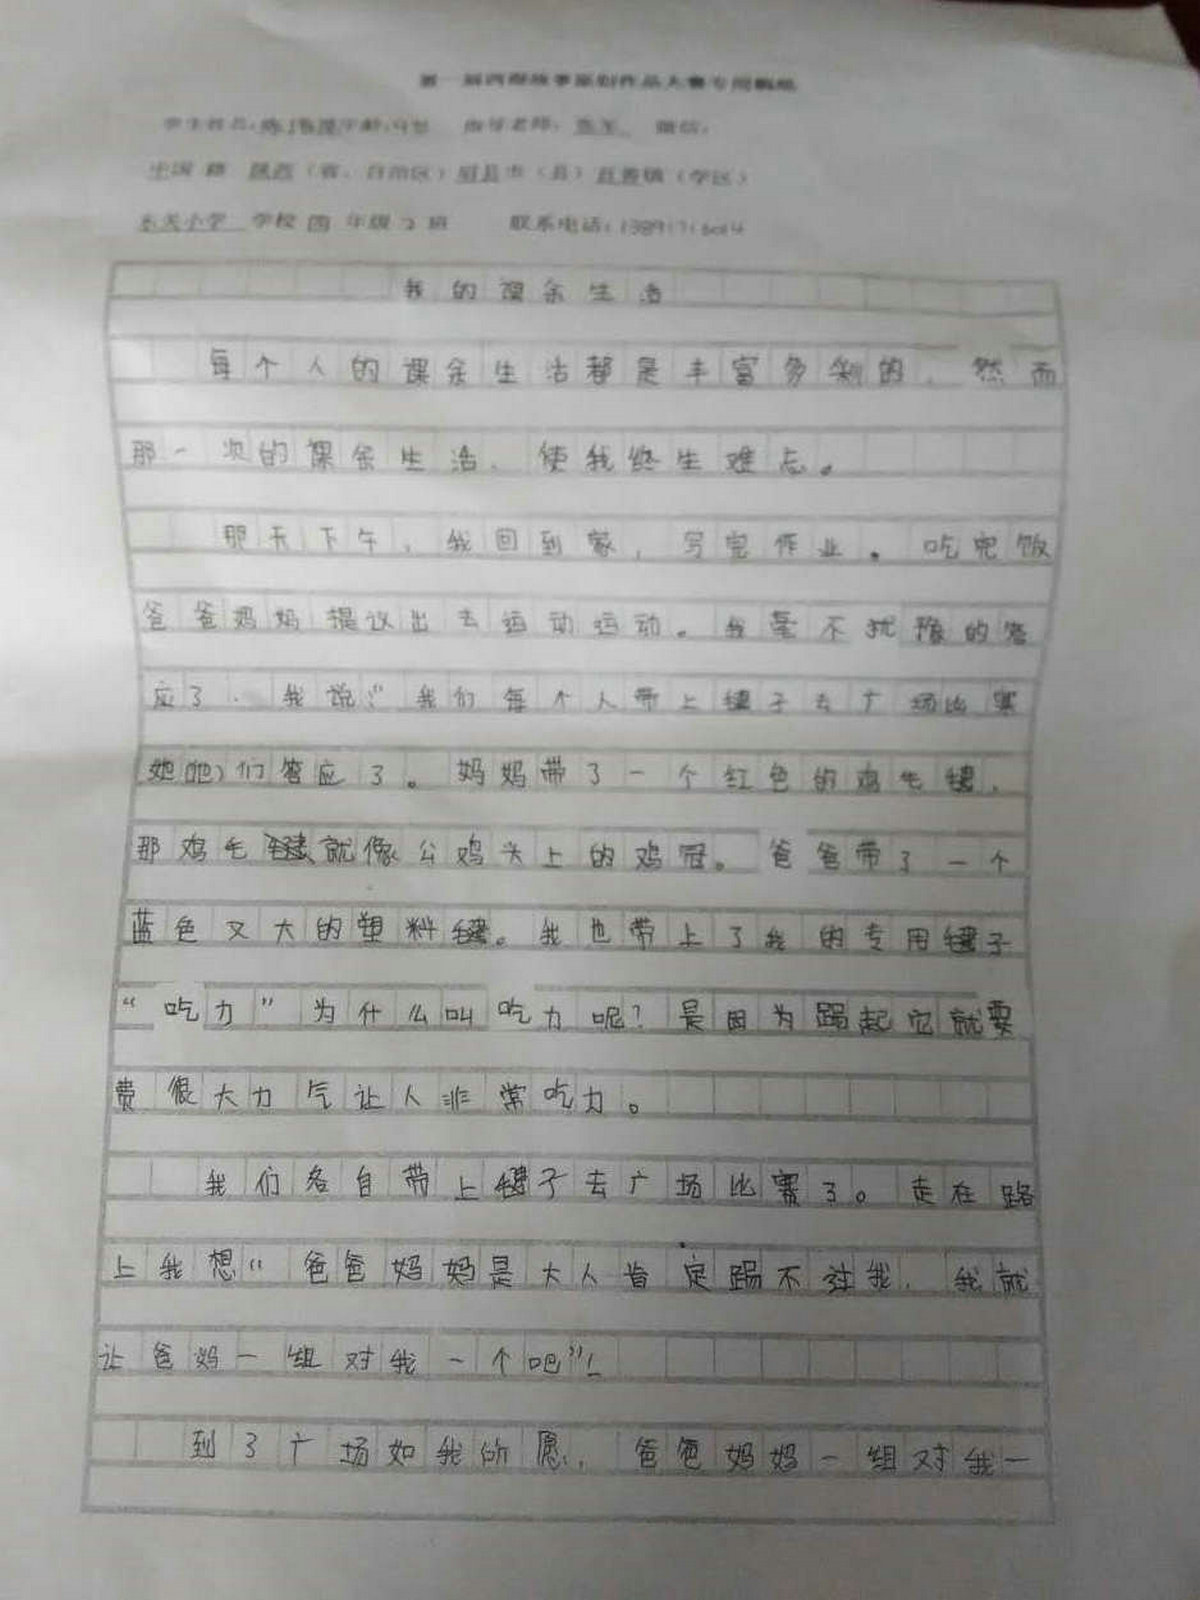 第一届西部故事原创作品大赛专用稿纸
学生姓名： 年龄：9岁 指导老师： 微信：
中国 陕西（省、自治区）眉县市（县）首善镇（学区）
东关小学 学校 四 年级 2 班 联系电话：
我的课余生活
每个人的课余生活都是丰富多彩的，然而
那一次的课余生活，使我终生难忘。
那天下午，我回到家，写完作业。吃完饭
爸爸妈妈提议出去运动运动。我毫不犹豫的答
应了．我说：“我们每个人带上毽子去广场比赛
她(他)们答应了。妈妈带了一个红色的鸡毛毽，
那鸡毛毽就像公鸡头上的鸡冠。爸爸带了一个
蓝色又大的塑料毽。我也带上了我的专用毽子
“吃力”为什么叫吃力呢？是因为踢起它就要
费很大力气让人非常吃力。
我们各自带上毽子去广场比赛了。走在路
上我想“爸爸妈妈是大人肯定踢不过我，我就
让爸妈一组对我一个吧”！
到了广场如我所愿，爸爸妈妈一组对我一